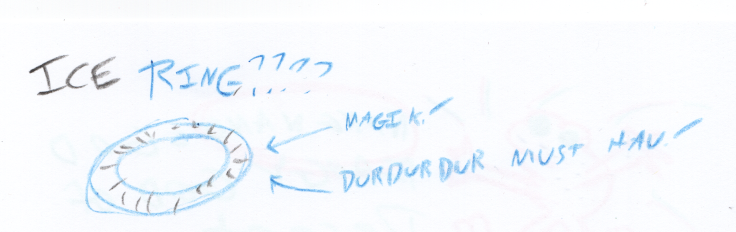 ICE RING????
MAGIK!
DURDURDUR MUST HAV!